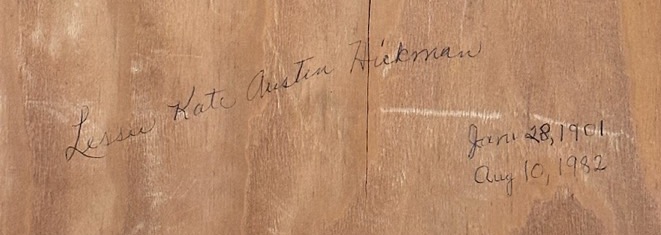 Lessie Kate Austin Hickman
Jan 28, 1901
Aug 10, 1982